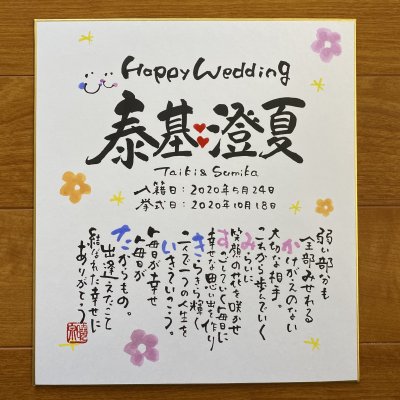 Happy Wedding
泰基 澄夏
Taiki & Sumika
入籍日：2020年5月24日
挙式日：2020年10月18日
弱い部分も
全部みせれる
かけがえのない
大切な相手。
これから歩んでいく
みらいに
笑顔の花を咲かせ
すごしていく毎日に
幸せな思い出を作り
きらきら輝く
二人で一つの人生を
いきていこう。
毎日が幸せ
毎日が
たからもの。
出逢えたこと
結ばれた幸せに
ありがとう